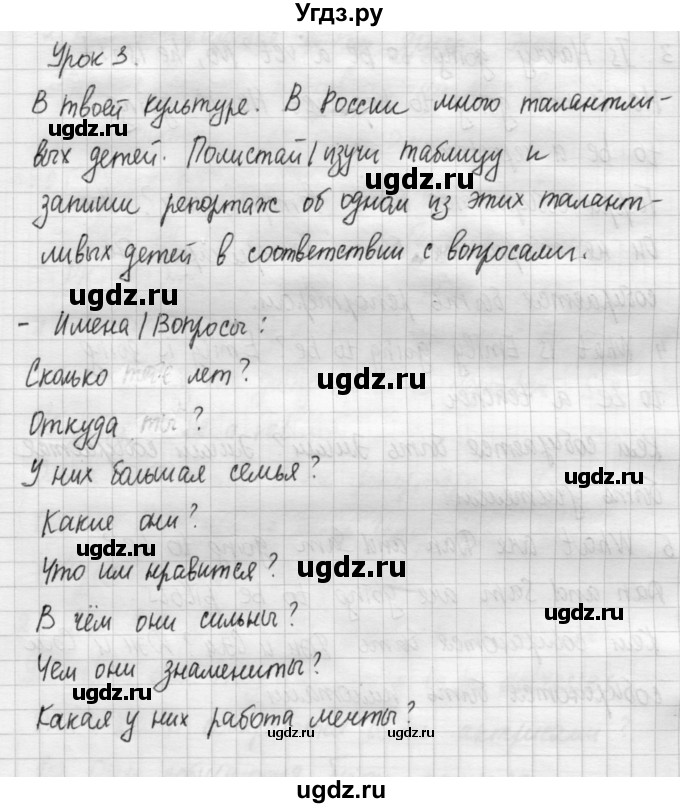 Угдз.ру
Урок 3.
В твоей культуре. В России много талантли-
ugdz.ru
вых детей. Полистай/изучи таблицу и
ugdz.ru
ugdz.ru
запиши репортаж об одном из этих талант-
ugdz.ru
ливых детей в соответствии с вопросами.
ugdz.ru
ugdz.ru
- Имена/Вопросы:
Сколько лет?
ugdz.ru
Откуда ты?
У них большая семья?
ugdz.ru
Какие они?
ugdz.ru
Что им нравится?
ugdz.ru
В чём они сильны?
ugdz.ru
Чем они знамениты?
ugdz.ru
Какая у них работа мечты?
ugdz.ru
ugdz.ru
ugdz.ru
ugdz.ru